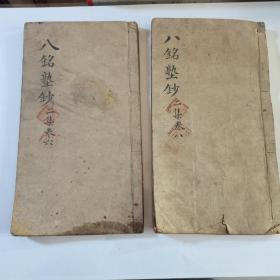 八銘塾鈔二集卷六
八銘塾鈔二集卷八